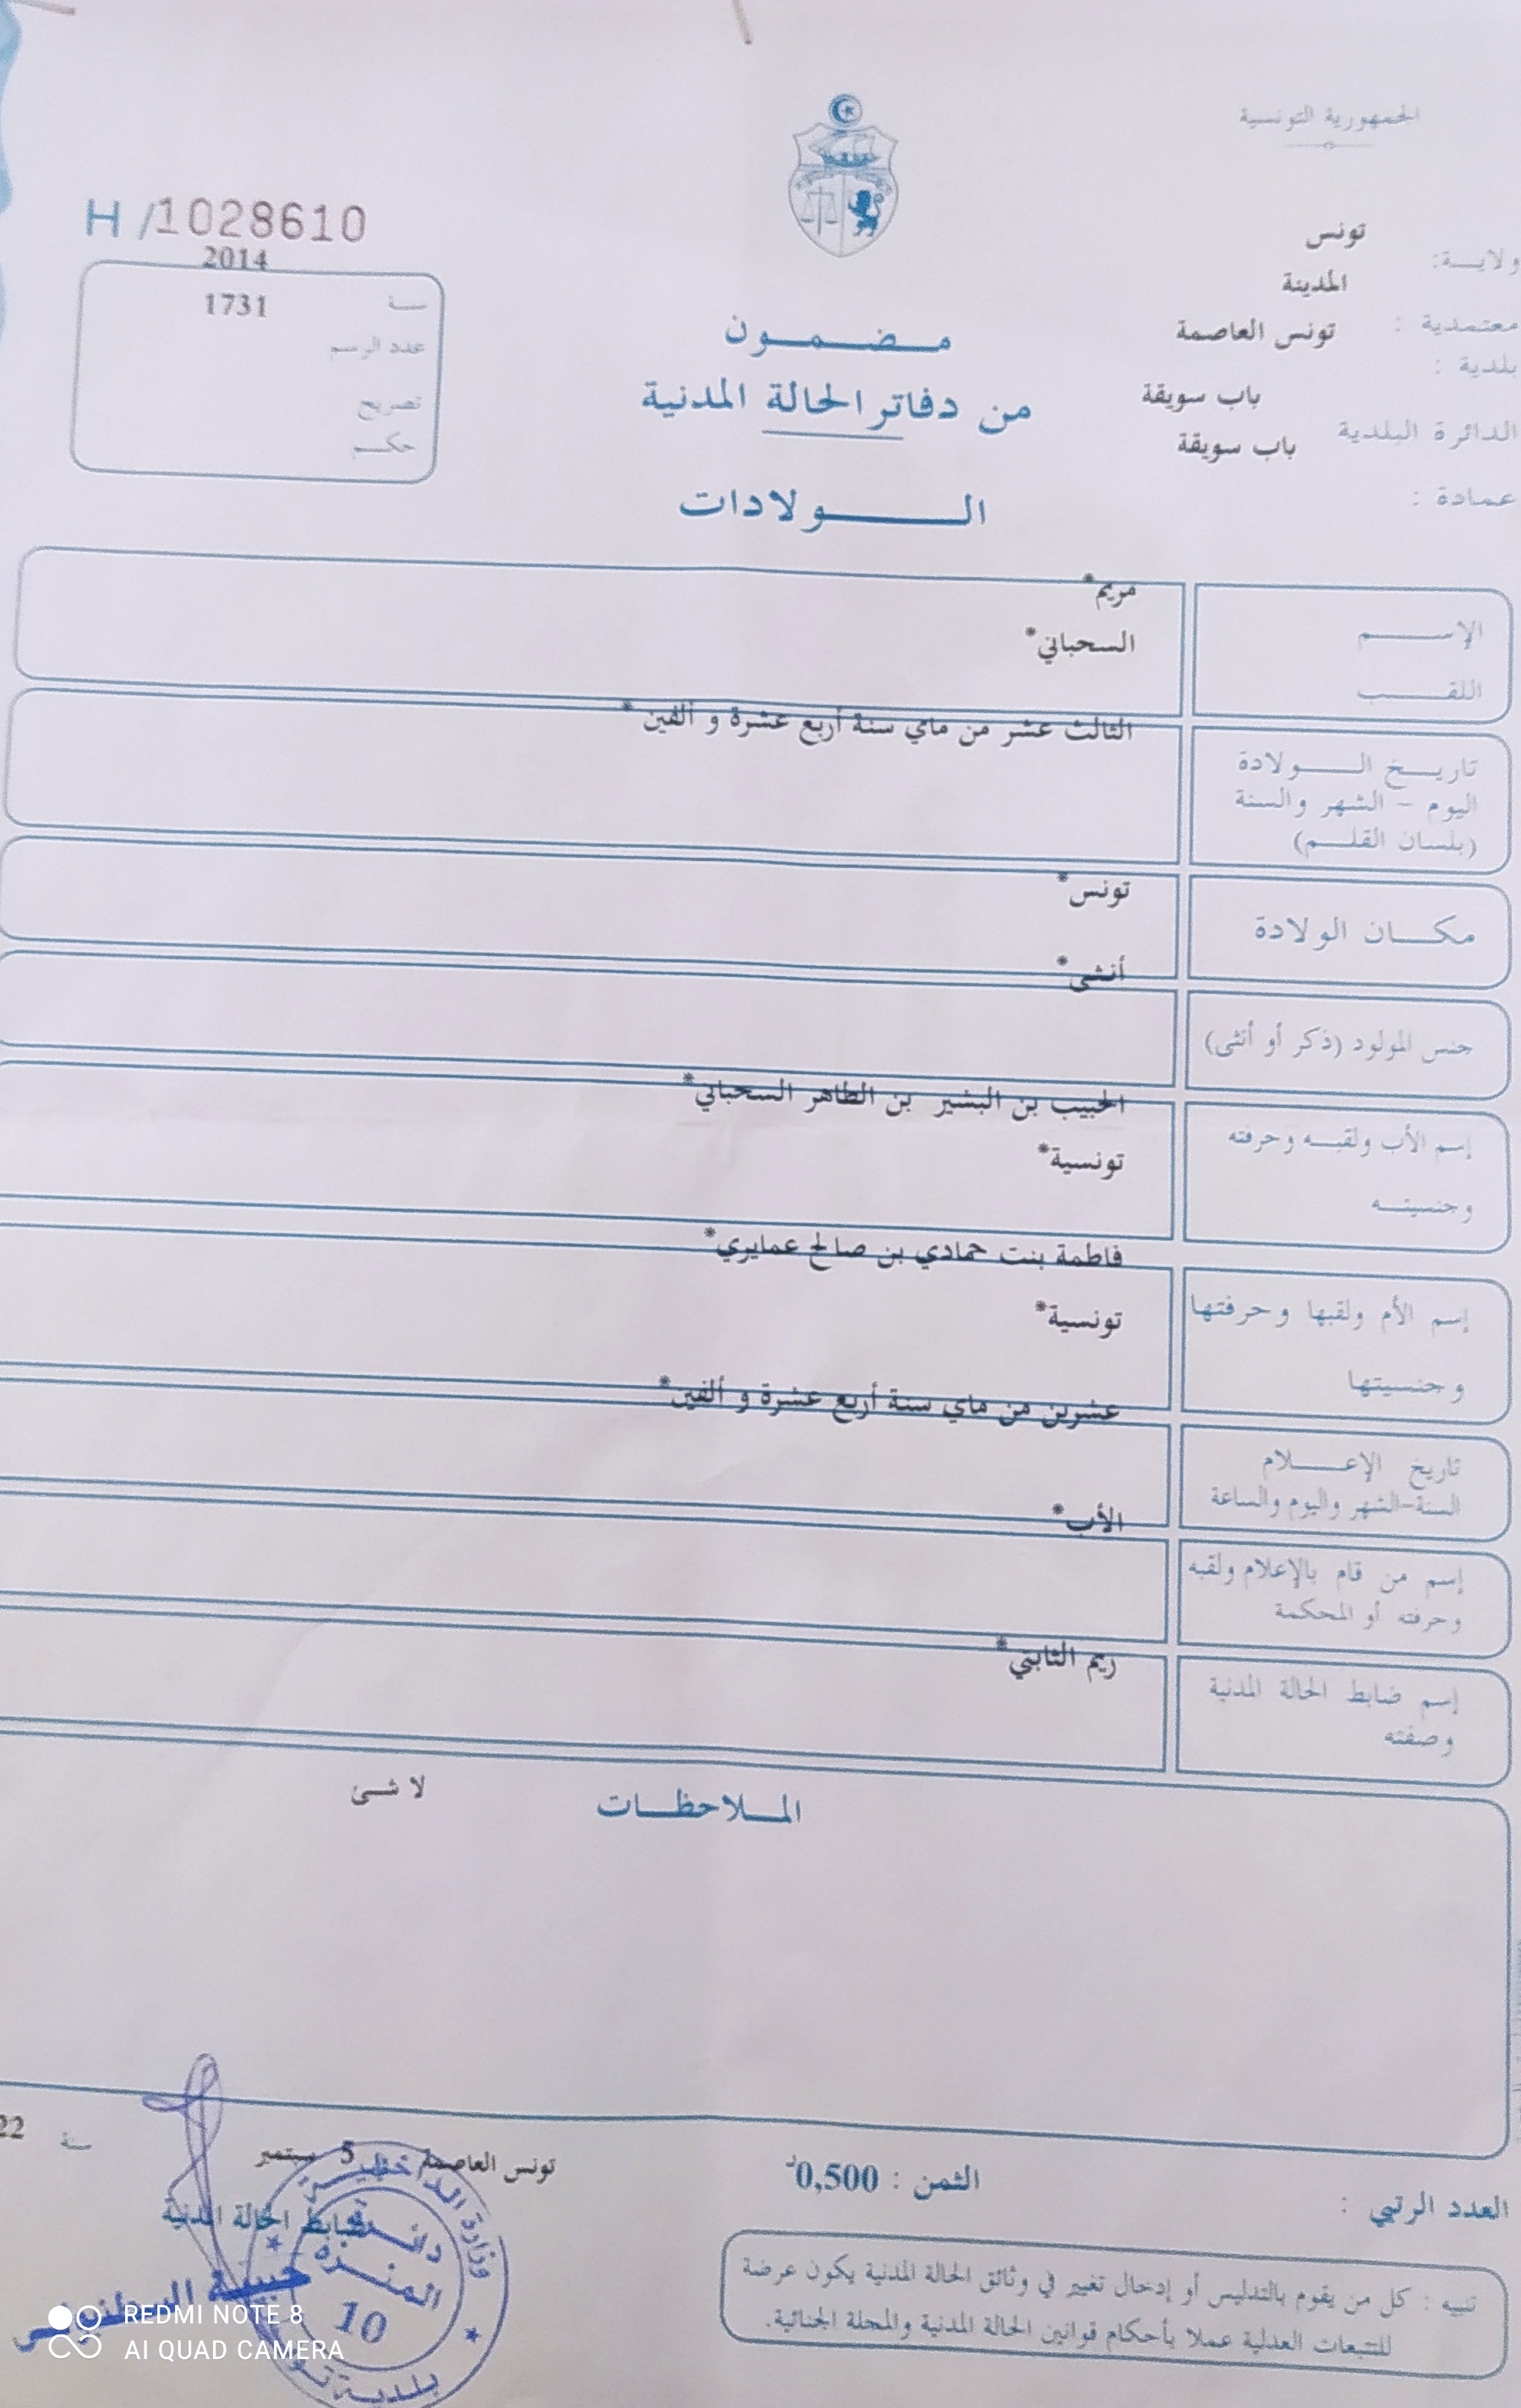 الجمهورية التونسية
ولايـــة: تونس
المدينة
معتمدية :
تونس العاصمة
بلدية :
باب سويقة
الدائرة البلدية
باب سويقة
عمادة :
H /1028610
2014
سـنـة 1731
عدد الرسم
تصريح
حكــم
مــضــمــون
من دفاتر الحالة المدنية
الــــولادات
الإســــم
مريم*
اللقــــب
السحباني*
تاريــخ الـــــولادة
اليوم - الشهر والسنة
(بلسان القلـــم)
الثالث عشر من ماي سنة أربع عشرة و ألفين *
مكـــان الولادة
تونس*
جنس المولود (ذكر أو أنثى)
أنثى*
إسم الأب ولقبــه وحرفته
وجنسيتــه
الحبيب بن البشير بن الطاهر السحباني*
تونسية*
إسم الأم ولقبها وحرفتها
وجنسيتها
فاطمة بنت حمادي بن صالح عمايري*
تونسية*
تاريخ الإعـــلام
السنة-الشهر واليوم والساعة
عشرين من ماي سنة أربع عشرة و ألفين*
إسم من قام بالإعلام ولقبه
وحرفته أو المحكمة
الأب*
إسم ضابط الحالة المدنية
وصفته
ريم الثابتي*
المــلاحظــات
لا شــئ
العدد الرتبي :
الثمن : 0,500د
تونس العاصمة 5 سبتمبر سنة 22
ضابط الحالة المدنية
وزارة الداخلية
دائرة
المنزه
10
بلدية تونس
تنبيه : كل من يقوم بالتدليس أو إدخال تغيير في وثائق الحالة المدنية يكون عرضة
للتتبعات العدلية عملا بأحكام قوانين الحالة المدنية والمجلة الجنائية.
REDMI NOTE 8
AI QUAD CAMERA